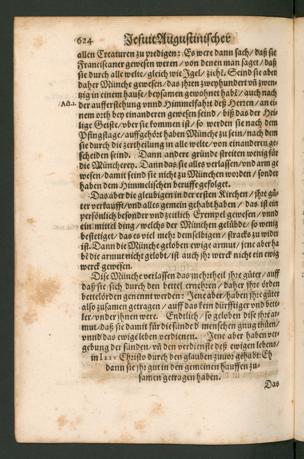 624 Jesuit Augustinischer
allen Creaturen zu predigen: Es were dann sach/ daß sie
Franciscaner gewesen weren/ von denen man saget/ daß
sie durch alle welt/ gleich wie Igel/ ziehl. Seind sie aber
daher Münche gewesen/ das ihren zweyhundert vñ zwen-
tzig in einem hause/ beysamen gewohnet habē/ auch nach
Act.1. der aufferstehung vnnd Himmelfahrt deß Herren/ an ei-
nem orth bey einanderen gewesen seind/ biß das der Hei-
lige Geiste/ vber sie kommen ist/ so werden sie nach dem
Pfingstage/ auffgehöt haben Münche zu sein/ nach dem
sie durch die zertheilung in alle welte/ von einanderen ge-
scheiden seind. Dann andere gründe streitten wenig für
die Müncherey. Dann daß sie alles verlassen/ vnd arm ge
wesen/ damit seind sie nicht zu München worden/ sonder
haben dem Himmelischen beruffe gefolget.
Das aber die gleubigen in der ersten Kirchen/ ihre gü-
ter verkaufft/ vnd alles gemein gehabt haben/ das ist ein
persönlich besonder vnd zeitlich Exempel gewesen/ vnnd
ein mittel ding/ welchs der München gelübde/ so wenig
bestetiget/ das es viel mehr demselbigen/ stracks zu wider
ist. Dann die Münche geloben ewige armut/ jene aber ha
bē die armut nicht gelobt/ ist auch ihr werck nicht ein ewig
werck gewesen.
Dise Münche verlassen das mehrtheil ihre güter/ auff
daß sie sich durch den bettel ernehren/ daher ihre örden
bettelörden genennt werden: Jene aber/ haben ihre güter
also zusamen getragen/ auff das kein dürfftiger vnd bett-
ler/ vnder ihnen were. Endtlich/ so geloben dise ihre ar-
mut/ daß sie damit für die sünde d menschen gnug thüen/
vnnd das ewige leben verdienen. Jene aber haben ver-
gebung der sünden/ vñ den verdienste deß ewigen lebens/
in Iesv Christo durch den glauben zuuor gehabt: Eh
dann sie ihr gut in den gemeinen hauffen zu-
samen getragen haben.
Das